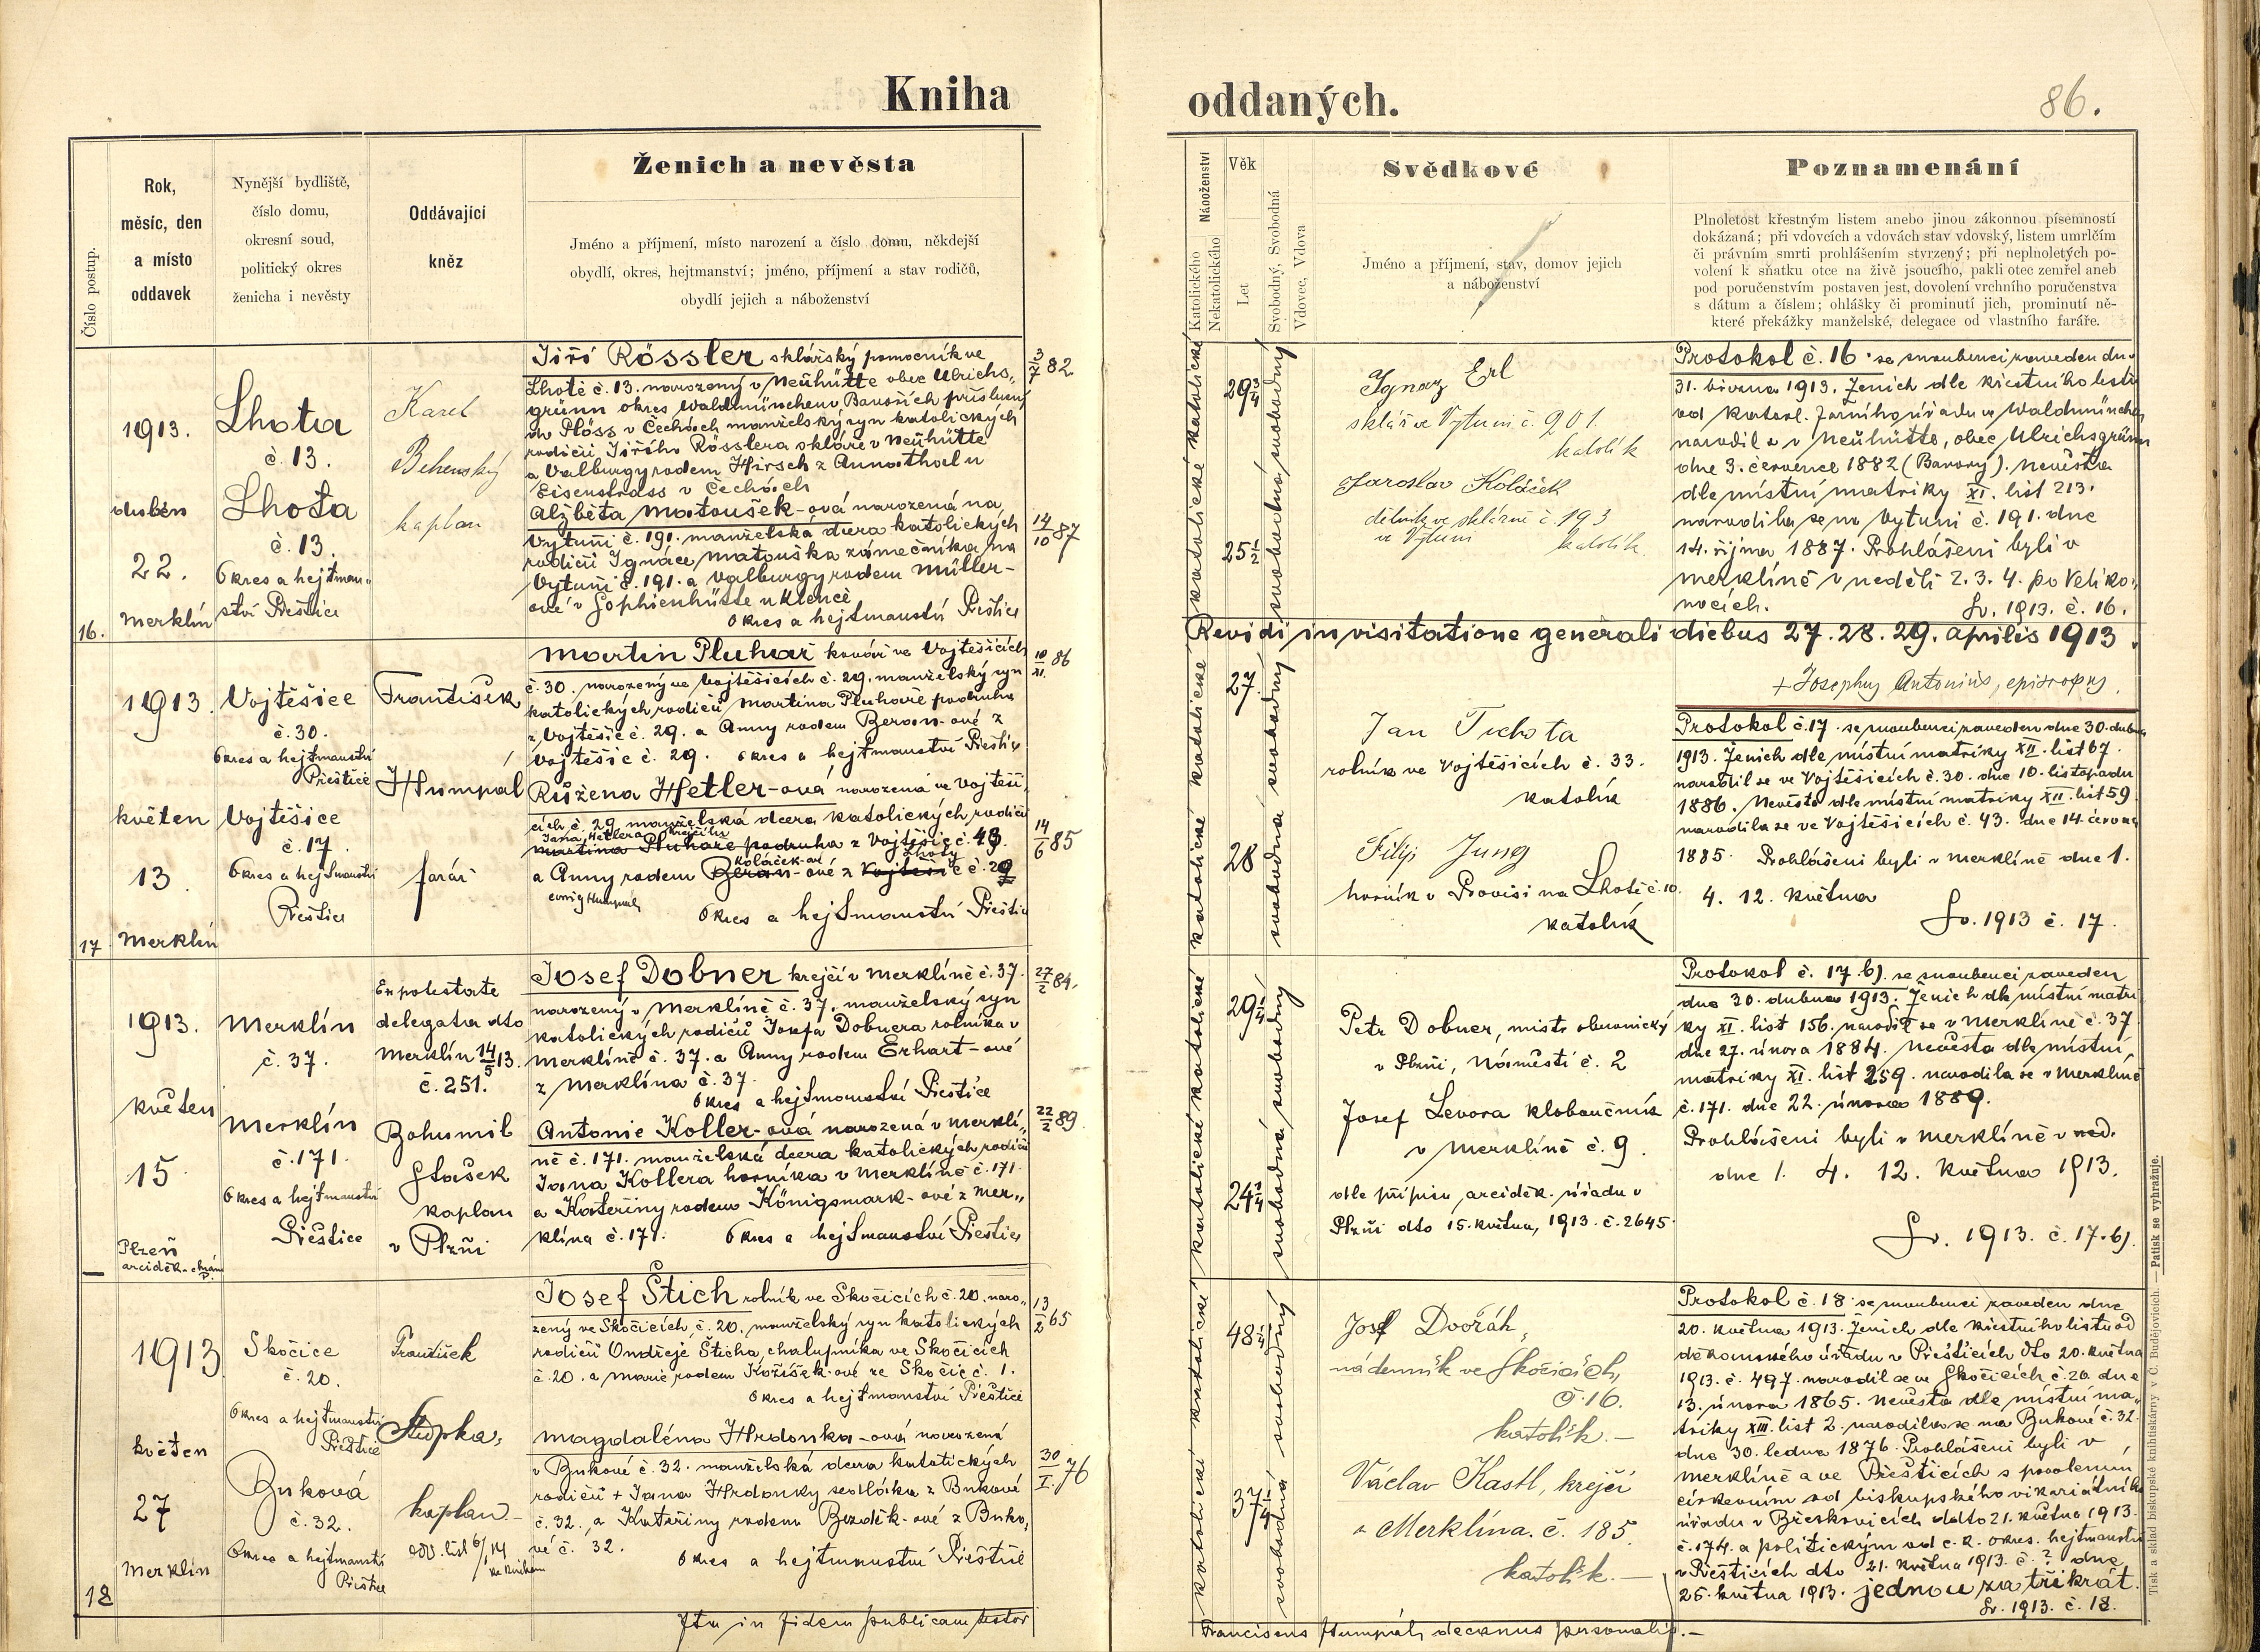 Kniha oddaných.
86.
Číslo postup.
Rok,
měsíc, den
a místo
oddavek
Nynější bydliště,
číslo domu,
okresní soud,
politický okres
ženicha i nevěsty
Oddávající
kněz
Ženich a nevěsta
Jméno a příjmení, místo narození a číslo domu, někdejší
obydlí, okres, hejtmanství; jméno, příjmení a stav rodičů,
obydlí jejich a náboženství
Náboženství
Katolického
Nekatolického
Věk
Let
Svobodný, Svobodná
Vdovec, Vdova
Svědkové
Jméno a příjmení, stav, domov jejich
a náboženství
Poznamenání
Plnoletost křestným listem anebo jinou zákonnou písemností
dokázaná; při vdovcích a vdovách stav vdovský, listem umrlčím
či právním smrti prohlášením stvrzený; při neplnoletých po-
volení k sňatku otce na živě jsoucího, pakli otec zemřel aneb
pod poručenstvím postaven jest, dovolení vrchního poručenstva
s dátum a číslem; ohlášky či prominutí jich, prominutí ně-
které překážky manželské, delegace od vlastního faráře.
16.
1913.
duben
22.
Merklín
Lhota
č. 13.
Lhota
č. 13.
Okres a hejtman„
ství Přeštice
Karel
Behenský
kaplan
Jiří Rössler sklářský pomocník ve
Lhotě č. 13. narozený v Neühütte obec Ulrichs„
grünn okres Waldmünchen v Bavořích příslušný
do Plöss v Čechách manželský syn katolických
rodičů Jiřího Rösslera skláře v Neühütte
a Valburgy rodem Hirsch z Annathal u
Eisenstrass v Čechách
3/7 82
Alžběta Matoušek-ová narozená na
Vytuni č. 191. manželská dcera katolických
rodičů Ignáce Matouška zámečníka na
Vytuni č. 191. a Valburgy rodem Müller-
ové v Sophienhütte u Klenče
Okres a hejtmanství Přeštice
14/10 87
katolické katolické
29 3/4
25 1/2
svobodná svobodný
Ignaz Erl
sklář ve Vytuni č. 201.
katolík
Jaroslav Koláček
dělník ve sklárně č. 193
ve Vytuni katolík
Protokol č. 16. se snoubenci zaveden dne
31. března 1913. Ženich dle křestního listu
od katol. farního úřadu ve Waldmünchen
narodil se v Neühütte, obec Ulrichsgrünn
dne 3. července 1882 (Bavory). Nevěsta
dle místní matriky XI. list 213.
narodila se na Vytuni č. 191. dne
14. října 1887. Prohlášeni byli v
Merklíně v neděli 2. 3. 4. po Veliko„
nocích.
Sv. 1913. č. 16.
Revidi in visitatione generali diebus 27. 28. 29. aprilis 1913.
+ Josephus Antonius, episcopus.
17
1913.
květen
13
Merklín
Vojtěšice
č. 30.
Okres a hejtmanství
Přeštice
Vojtěšice
č. 17.
Okres a hejtmanství
Přeštice
František
Humpál
farář
Martin Pluhař kovář ve Vojtěšicích
č. 30. narozený ve Vojtěšicích č. 29. manželský syn
katolických rodičů Martina Pluhaře podruha
z Vojtěšic č. 29. a Anny rodem Beran-ové z
Vojtěšic č. 29. Okres a hejtmanství Přeštice
10/XI. 86
Růžena Hetler-ová narozená ve Vojtěši„
cích č. 29. manželská dcera katolických rodičů
Jana Hetlera krejčího
Martina Pluhaře podruha z Vojtěšic č. 43.
Koláček-ové Lhoty
a Anny rodem Beran-ové z Vojtěšic č. 29
corrig Humpál
Okres a hejtmanství Přeštice
14/6 85
katolické katolické
27.
28
svobodná svobodný
Jan Tichota
rolník ve Vojtěšicích č. 33.
katolík
Filip Jung
horník v Provisi na Lhotě č. 10.
katolík
Protokol č. 17. se snoubenci zaveden dne 30. dubna
1913. Ženich dle místní matriky XII. list 67.
narodil se ve Vojtěšicích č. 30. dne 10. listopadu
1886. Nevěsta dle místní matriky XII. list 59.
narodila se ve Vojtěšicích č. 43. dne 14. června
1885. Prohlášeni byli v Merklíně dne 1.
4. 12. května
Sv. 1913 č. 17.
—
1913.
květen
15
Plzeň
arciděk. chrám
P.
Merklín
č. 37.
Merklín
č. 171.
Okres a hejtmanství
Přeštice
Ex potestate
delegata dto
Merklín 14/5 13.
č. 251.
Bohumil
Stašek
kaplan
v Plzni
Josef Dobner krejčí v Merklíně č. 37.
narozený v Merklíně č. 37. manželský syn
katolických rodičů Josefa Dobnera rolníka v
Merklíně č. 37. a Anny rodem Erhart-ové
z Merklína č. 37.
Okres a hejtmanství Přeštice
27/2 84.
Antonie Koller-ová narozená v Merklí„
ně č. 171. manželská dcera katolických rodičů
Jana Kollera horníka v Merklíně č. 171.
a Kateřiny rodem Königsmark-ové z Mer„
klína č. 171. Okres a hejtmanství Přeštice
22/2 89.
katolické katolické
29 1/4
24 1/4
svobodná svobodný
Petr Dobner, mistr obuvnický
v Plzni, Náměstí č. 2
Josef Levora kloboučník
v Merklíně č. 9.
dle přípisu arciděk. úřadu v
Plzni dto 15. května, 1913. č. 2645.
Protokol č. 17. b). se snoubenci zaveden
dne 30. dubna 1913. Ženich dle místní matri
ky XI. list 156. narodil se v Merklíně č. 37
dne 27. února 1884. Nevěsta dle místní
matriky XI. list 259. narodila se v Merklíně
č. 171. dne 22. února 1889.
Prohlášeni byli v Merklíně v ned.
dne 1. 4. 12. května 1913.
Sv. 1913. č. 17. b).
18
1913
květen
27
Merklín
Skočice
č. 20.
Okres a hejtmanství
Přeštice
Buková
č. 32.
Okres a hejtmanství
Přeštice
František
Stupka,
kaplan. –
odd. list 6/1 14
Josef Štich rolník ve Skočicích č. 20. naro„
zený ve Skočicích č. 20. manželský syn katolických
rodičů Ondřeje Šticha chalupníka ve Skočicích
č. 20. a Marie rodem Kožíšek-ové ze Skočic č. 1.
Okres a hejtmanství Přeštice
13/2 65
Magdaléna Hrdonka-ová narozená
v Bukové č. 32. manželská dcera katolických
rodičů + Jana Hrdonky sedláka z Bukové
č. 32. a Kateřiny rodem Bezděk-ové z Buko„
vé č. 32.
Okres a hejtmanství Přeštice
30/I. 76
katolické katolické
48 1/4
37 1/4
svobodná svobodný
Josef Dvořák,
nádenník ve Skočicích,
č. 16.
katolík. –
Václav Kastl, krejčí
z Merklína. č. 185.
katolík. –
Protokol č. 18. se snoubenci zaveden dne
20. května 1913. Ženich dle křestního listu od
děkanského úřadu v Přešticích dto 20. května
1913. č. 497. narodil se ve Skočicích č. 20. dne
13. února 1865. Nevěsta dle místní ma„
triky XIII. list 2. narodila se na Bukové č. 32.
dne 30. ledna 1876. Prohlášeni byli v
Merklíně a ve Přešticích s povolením
církevním od biskupského vikariátního
úřadu v Březkovicích ddto 21. května 1913.
č. 174. a politickým od c. k. okres. hejtmanství
v Přešticích dto 21. května 1913. č. ? dne
25. května 1913. jednou za třikrát.
Sv. 1913. č. 18.
Ita in fidem publicam testor
Franciscus Humpál, decanus personalis. –
Tisk a sklad biskupské knihtiskárny v Č. Budějovicích. — Patisk se vyhražuje.